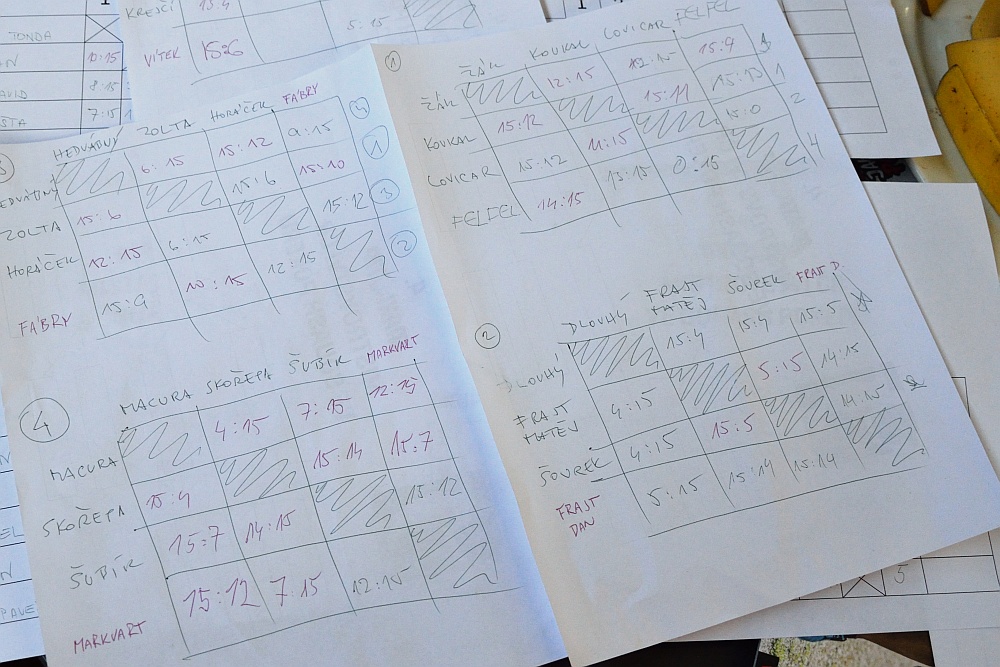 TONDA
10:15
8:15
7:15
KREJČÍ 15:4
5:15
VÍTEK 15:6
HEDVÁBNÝ ZOLTA HORÁČEK FÁBRY
6:15 15:12 9:15 4
ZOLTA 15:6 15:6 15:10 1
HORÁČEK 12:15 6:15 15:12 3
FÁBRY 15:9 10:15 12:15 2
4
MACURA SKOŘEPA ŠUBÍK MARKVART
MACURA 4:15 7:15 12:15
SKOŘEPA 15:4 15:14 15:7
ŠUBÍK 15:7 14:15 15:12
MARKVART 15:12 7:15 12:15
1
ŽÁK KOUKAL LOVICAR FELFEL
ŽÁK 12:15 12:15 15:9
KOUKAL 15:12 15:11 15:13 1
LOVICAR 15:12 11:15 15:0 2
FELFEL 14:15 13:15 0:15 4
2
DLOUHÝ FRAJT MATĚJ ŠOUREK FRAJT D.
DLOUHÝ 15:4 15:4 15:5
FRAJT MATĚJ 4:15 5:15 14:15
ŠOUREK 4:15 15:5 14:15
FRAJT DAN 5:15 15:14 15:14
5